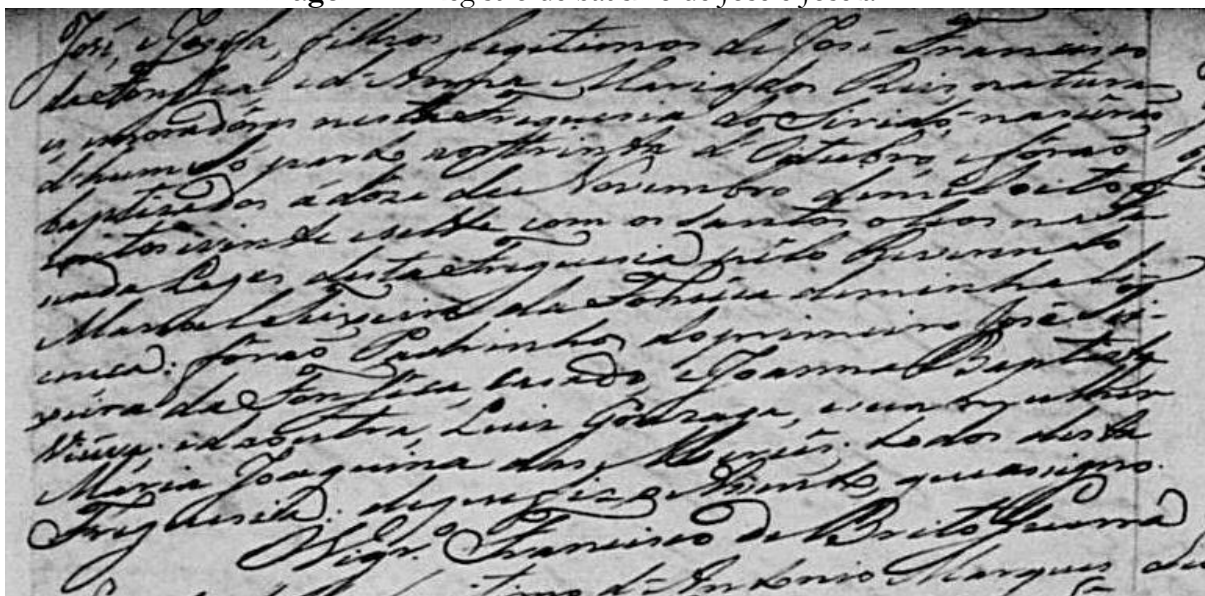 José, e Josefa, filhos legitimos de José Francisco
da Fonsêca, e d'Anna Maria dos Reis, natura-
es, e moradores nesta Freguesia do Siridó, nascêrão
d'hum só parto aos trinta d'Outubro, e forão
baptizados a doze de Novembro de mil oito
centos e vinte e sette com os santos oleos na
das Lages desta Freguesia pelo Reverendo
Manoel Teixeira da Fonsêca de minha li-
cença: forão Padrinhos do primeiro José Tei-
xeira da Fonsêca, casado, e Joanna Baptista
Viuva; e da outra, Luiz Gonzaga, e sua mulher
Maria Joaquina das Mercês, todos desta
Freguesia: de que fiz este Assento, que assigno.
Vigr.º Francisco de Brito Guerra
d'Antonio Marques